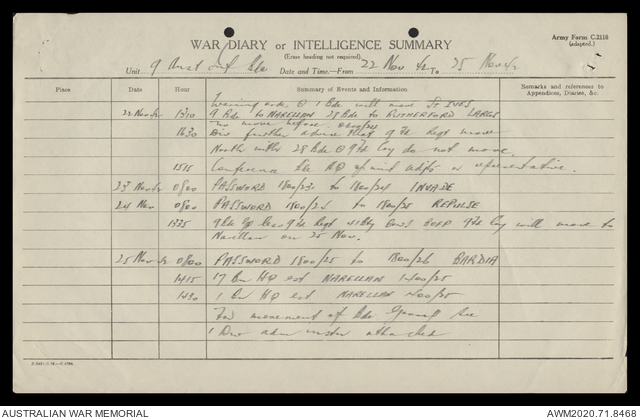 Army Form C.2118
(adapted.)
WAR DIARY or INTELLIGENCE SUMMARY
(Erase heading not required)
Unit 9 Aust Inf Bde Date and Time—From 22 Nov 42 To 25 Nov 42
Place Date Hour Summary of Events and Information Remarks and references to Appendices, Diaries, &c.
22 Nov 42 1310 Warning order 1 Bde will move St IVES
9 Bde to NARELLAN 28 Bde to RUTHERFORD LARGS
no move before
1630 Div further advise that 9 Fd Regt move
North with 28 Bde 9 Fd Coy do not move.
1515 Conference Bde HQ of unit adjts or representative.
23 Nov 42 0800 PASSWORD 1800/23 to 1800/24 INVADE
24 Nov 0800 PASSWORD 1800/24 to 1800/25 REPULSE
1335 9 Bde Gp less 9 Fd Regt 9 Fd Coy will move to
Narellan on 25 Nov.
25 Nov 42 0800 PASSWORD 1800/25 to 1800/26 BARDIA
1415 17 Bn HQ est NARELLAN 1400/25
1430 1 Bn HQ est NARELLAN 1400/25
For movement of Bde Group see
1 Div adm instr attached
AUSTRALIAN WAR MEMORIAL AWM2020.71.8468